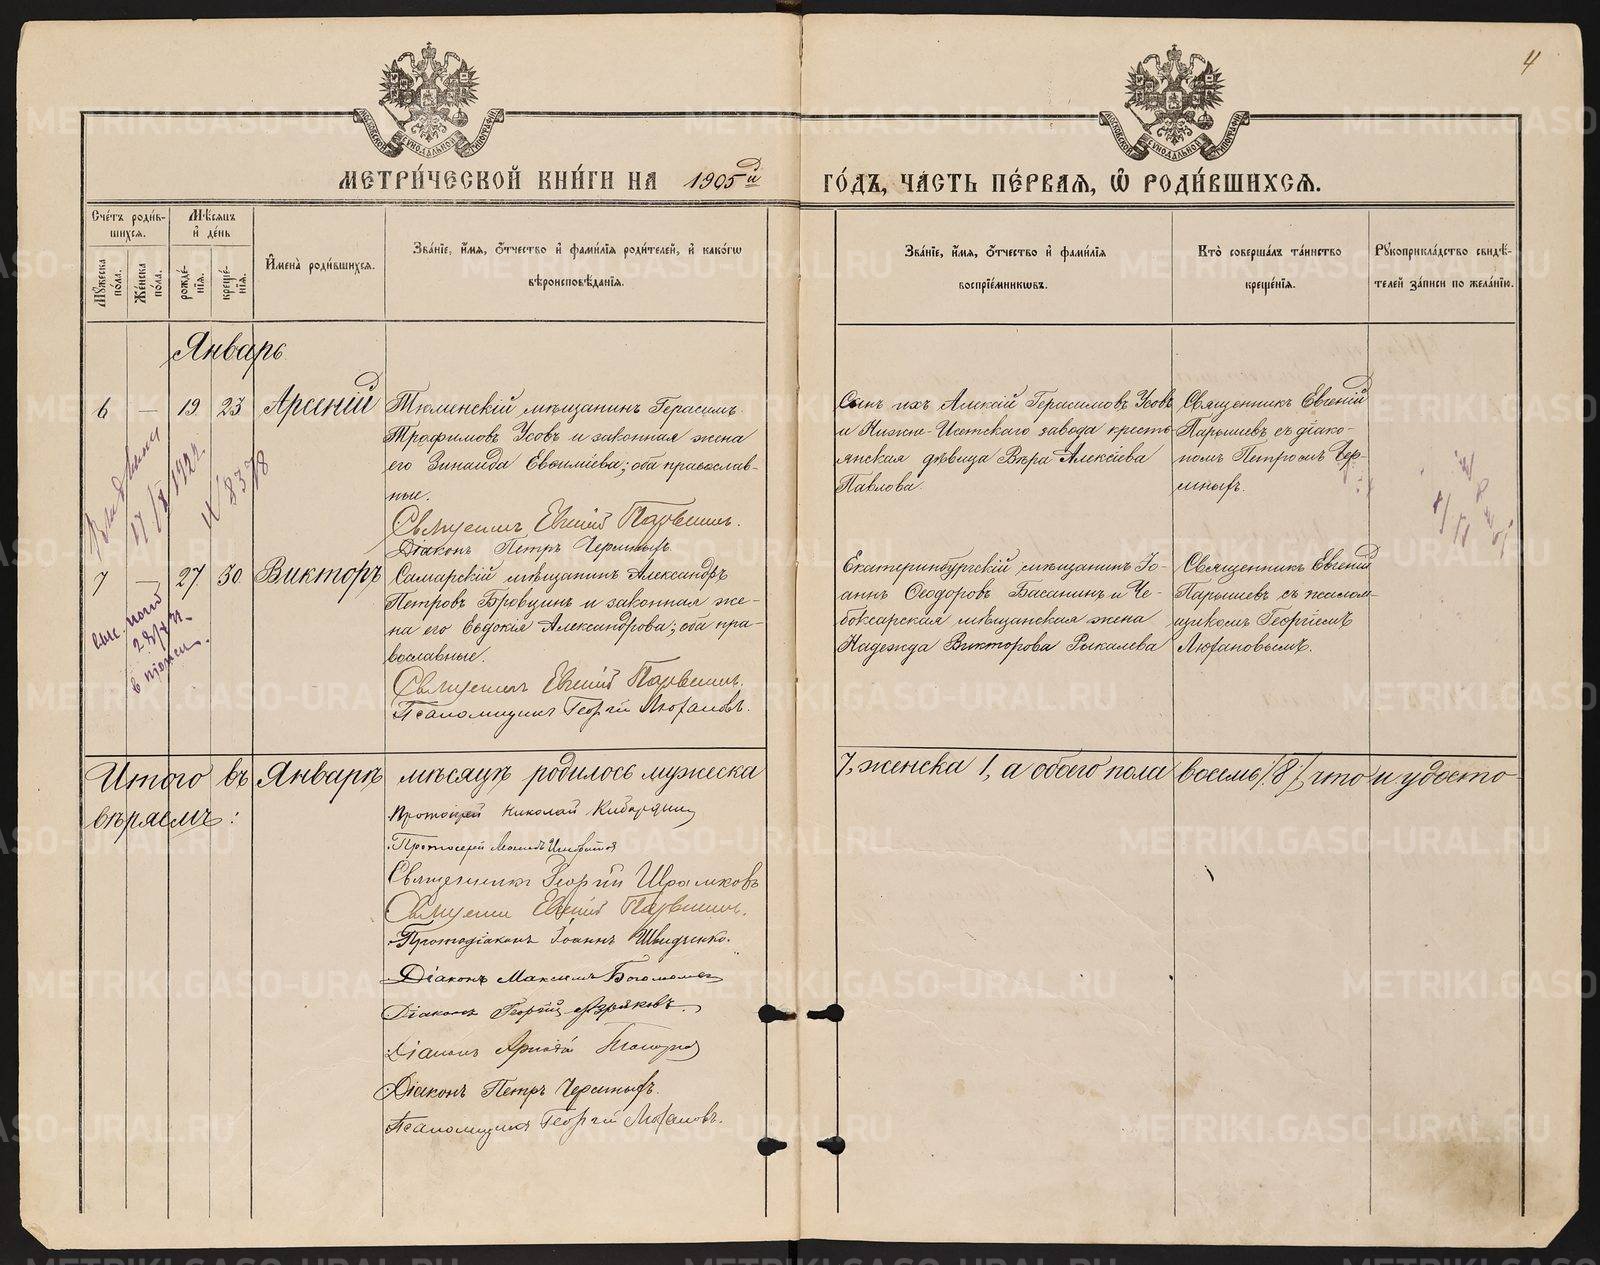 4
МЕТРИ́ЧЕСКОЙ КНИ́ГИ НА 1905й ГО́ДЪ, ЧА́СТЬ ПЕ́РВАЯ, Ѿ РОДИ́ВШИХСЯ.
Сче́тъ роди́в-
шихся.
Мѣсяцъ
и҆ де́нь
Мꙋжеска по́ла.
Же́нска по́ла.
рожде́-
нїя.
креще́-
нїя.
И҆мена̀ роди́вшихся.
Зва́нїе, и҆́мя, ѻ҆́тчество и҆ фами́лїя роди́телей, и҆ како́гѡ
вѣроисповѣ́данїя.
Зва́нїе, и҆́мя, ѻ҆́тчество и҆ фами́лїя
воспрїе́мникѡвъ.
Кто̀ соверша́лъ та́инство
креще́нїя.
Рꙋкоприкла́дство свидѣ́-
телей за́писи по жела́нїю.
Январь
6 — 19 23 Арсеній
Тюменскій мѣщанинъ Герасимъ
Трофимовъ Усовъ и законная жена
его Зинаида Евѳиміева; оба православ-
ные.
Священникъ Евгеній Парышевъ.
Діаконъ Петръ
Сынъ ихъ Алексій Герасимовъ Усовъ
и Нижне-Исетскаго завода кресть-
янская дѣвица Вѣра Алексіева
Павлова
Священникъ Евгеній
Парышевъ съ діако-
номъ Петромъ
17/X 1922
8378
7 — 27 30 Викторъ
Самарскій мѣщанинъ Александръ
Петровъ Бровцинъ и законная же-
на его Евдокія Александрова; оба пра-
вославные.
Священникъ Евгеній Парышевъ.
Псаломщикъ Георгій Люхановъ.
Екатеринбургскій мѣщанинъ Іо-
аннъ Ѳеодоровъ Басанинъ и Че-
боксарская мѣщанская жена
Надежда Викторова Рыкалева
Священникъ Евгеній
Парышевъ съ псалом-
щикомъ Георгіемъ
Люхановымъ.
Итого въ Январѣ мѣсяцѣ родилось мужеска 7, женска 1, а обоего пола восемь /8/, что и удосто-
вѣряемъ:
Протоіерей Николай
Протоіерей
Священникъ Георгій
Священникъ Евгеній Парышевъ.
Протодіаконъ Іоаннъ Швидченко.
Діаконъ Максимъ
Діаконъ Георгій
Діаконъ
Діаконъ Петръ
Псаломщикъ Георгій Люхановъ.
METRIKI.GASO-URAL.RU